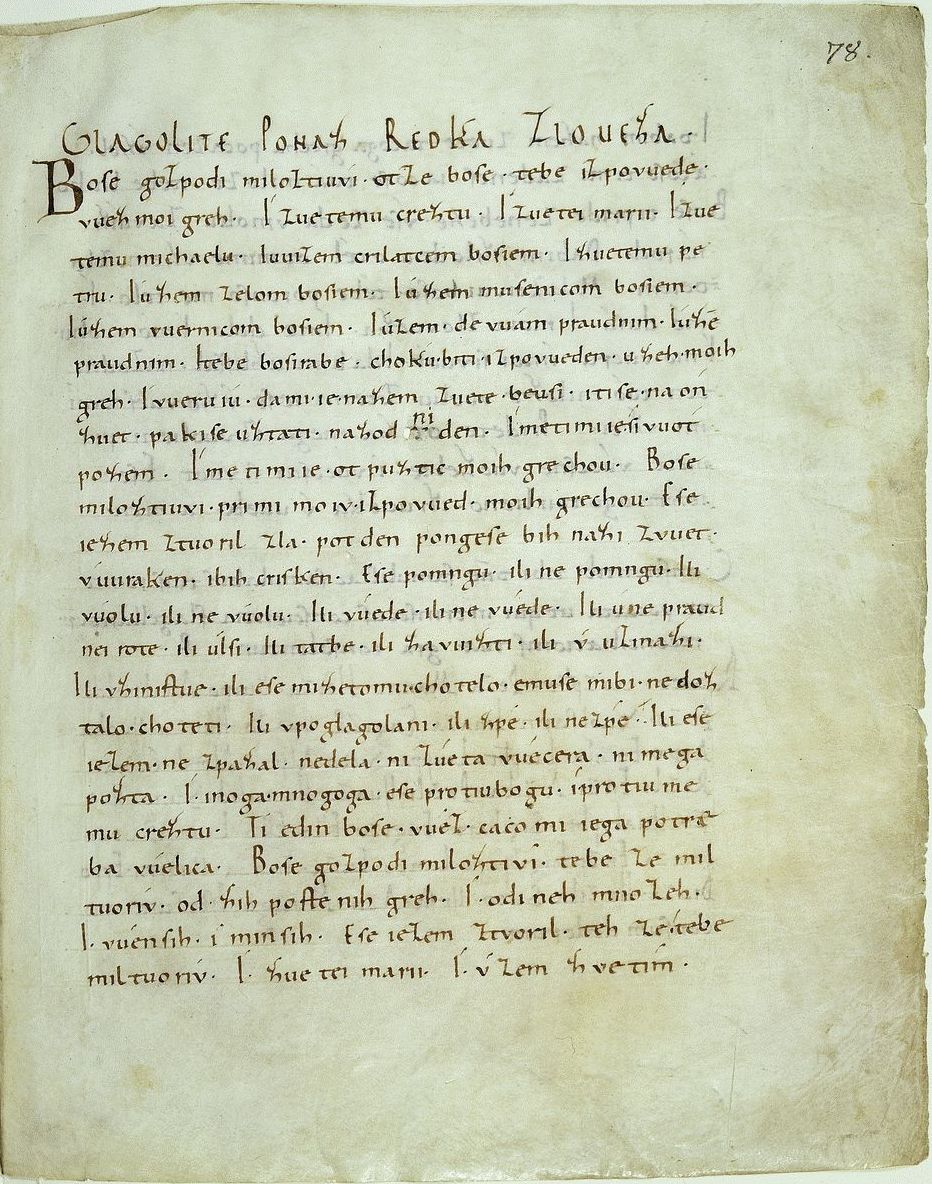 78.
GLAGOLITE PONAZ REDKA ZLOUEZA.
Bose gozpodi miloztiuvi. otze bose. tebe izpovuede.
vuez moi greh. I zuetemu creztu. I zuetei marii. I zue
temu michaelu. Iuuizem crilatcem bosiem. I zuetemu pe
tru. Iuzem zelom bosiem. Iuzem musenicom bosiem.
Iuzem vuernicom bosiem. Iuzem. devuam praudnim. Iuze
praudnim. Itebe bosirabe. chokubiti. izpovueden. uzeh. moih
greh. I vueruiu. dami. ie. nazem zuete. beusi. itise. naon
zuet. pakise uztati. nazod ni den. Imetimi iesi vuot
pozem. Imetimi ie. ot puztic moih grechou. Bose
miloztiuvi. primi moiv. izpovued. moih grechou. Ese
iezem ztuoril zla. pot den pongese bih nazi zvuet.
vuuraken. ibih crisken. Ese pomngu. ili ne pomngu. Ili
vuolu. ili ne vuolu. Ili vuede. ili ne vuede. Ili u ne praud
nei rote. ili ulsi. Ili tatbe. ili zavuizti. ili v uzmazi.
Ili vzinistue. ili ese mizetomu. chotelo. emuse mibi. ne doz
talo. choteti. Ili vpoglagolani. ili zpe. ili nezpe. Ili ese
iezem. ne zpazal. nedela. ni zueta vuecera. ni mega
pozta. I. inoga. mnogoga. ese protiubogu. i protiu me
mu creztu. Ti edin bose. vuez. caco mi iega potre
ba vuelica. Bose gozpodi miloztivi. tebe ze mil
tuoriv. od. zih postenih greh. I. odineh mnozeh.
I. vuensih. i minsih. Ese iezem ztvoril. teh ze. tebe
miltuoriv. I. zuetei marii. I. vzem zvetim.